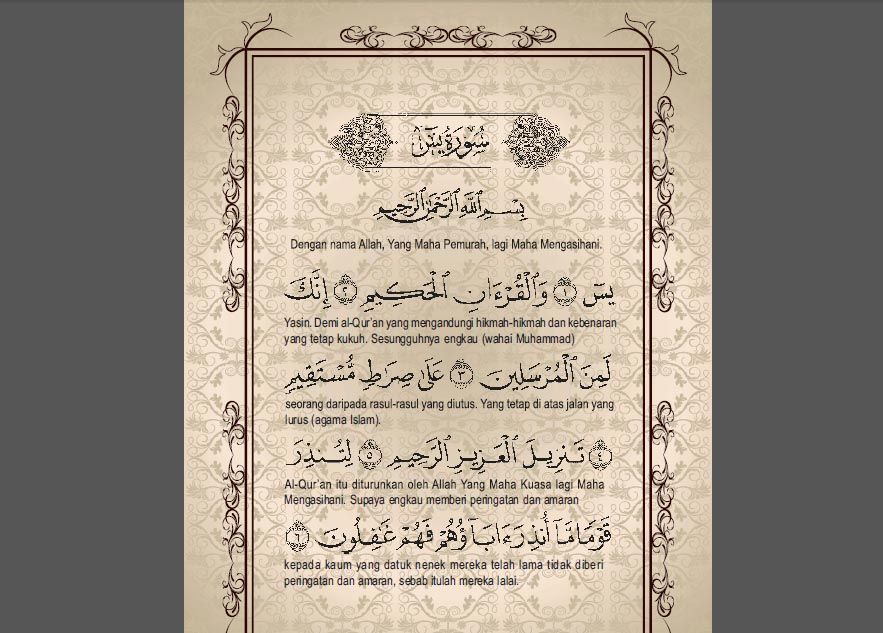 سُورَةُ يسٓ
بِسْمِ اللَّهِ الرَّحْمَٰنِ الرَّحِيمِ
Dengan nama Allah, Yang Maha Pemurah, lagi Maha Mengasihani.
يسٓ ١ وَٱلْقُرْءَانِ ٱلْحَكِيمِ ٢ إِنَّكَ
Yasin. Demi al-Qur'an yang mengandungi hikmah-hikmah dan kebenaran
yang tetap kukuh. Sesungguhnya engkau (wahai Muhammad)
لَمِنَ ٱلْمُرْسَلِينَ ٣ عَلَىٰ صِرَٰطٍ مُّسْتَقِيمٍ
seorang daripada rasul-rasul yang diutus. Yang tetap di atas jalan yang
lurus (agama Islam).
٤ تَنزِيلَ ٱلْعَزِيزِ ٱلرَّحِيمِ ٥ لِتُنذِرَ
Al-Qur'an itu diturunkan oleh Allah Yang Maha Kuasa lagi Maha
Mengasihani. Supaya engkau memberi peringatan dan amaran
قَوْمًا مَّآ أُنذِرَ ءَابَآؤُهُمْ فَهُمْ غَٰفِلُونَ ٦
kepada kaum yang datuk nenek mereka telah lama tidak diberi
peringatan dan amaran, sebab itulah mereka lalai.